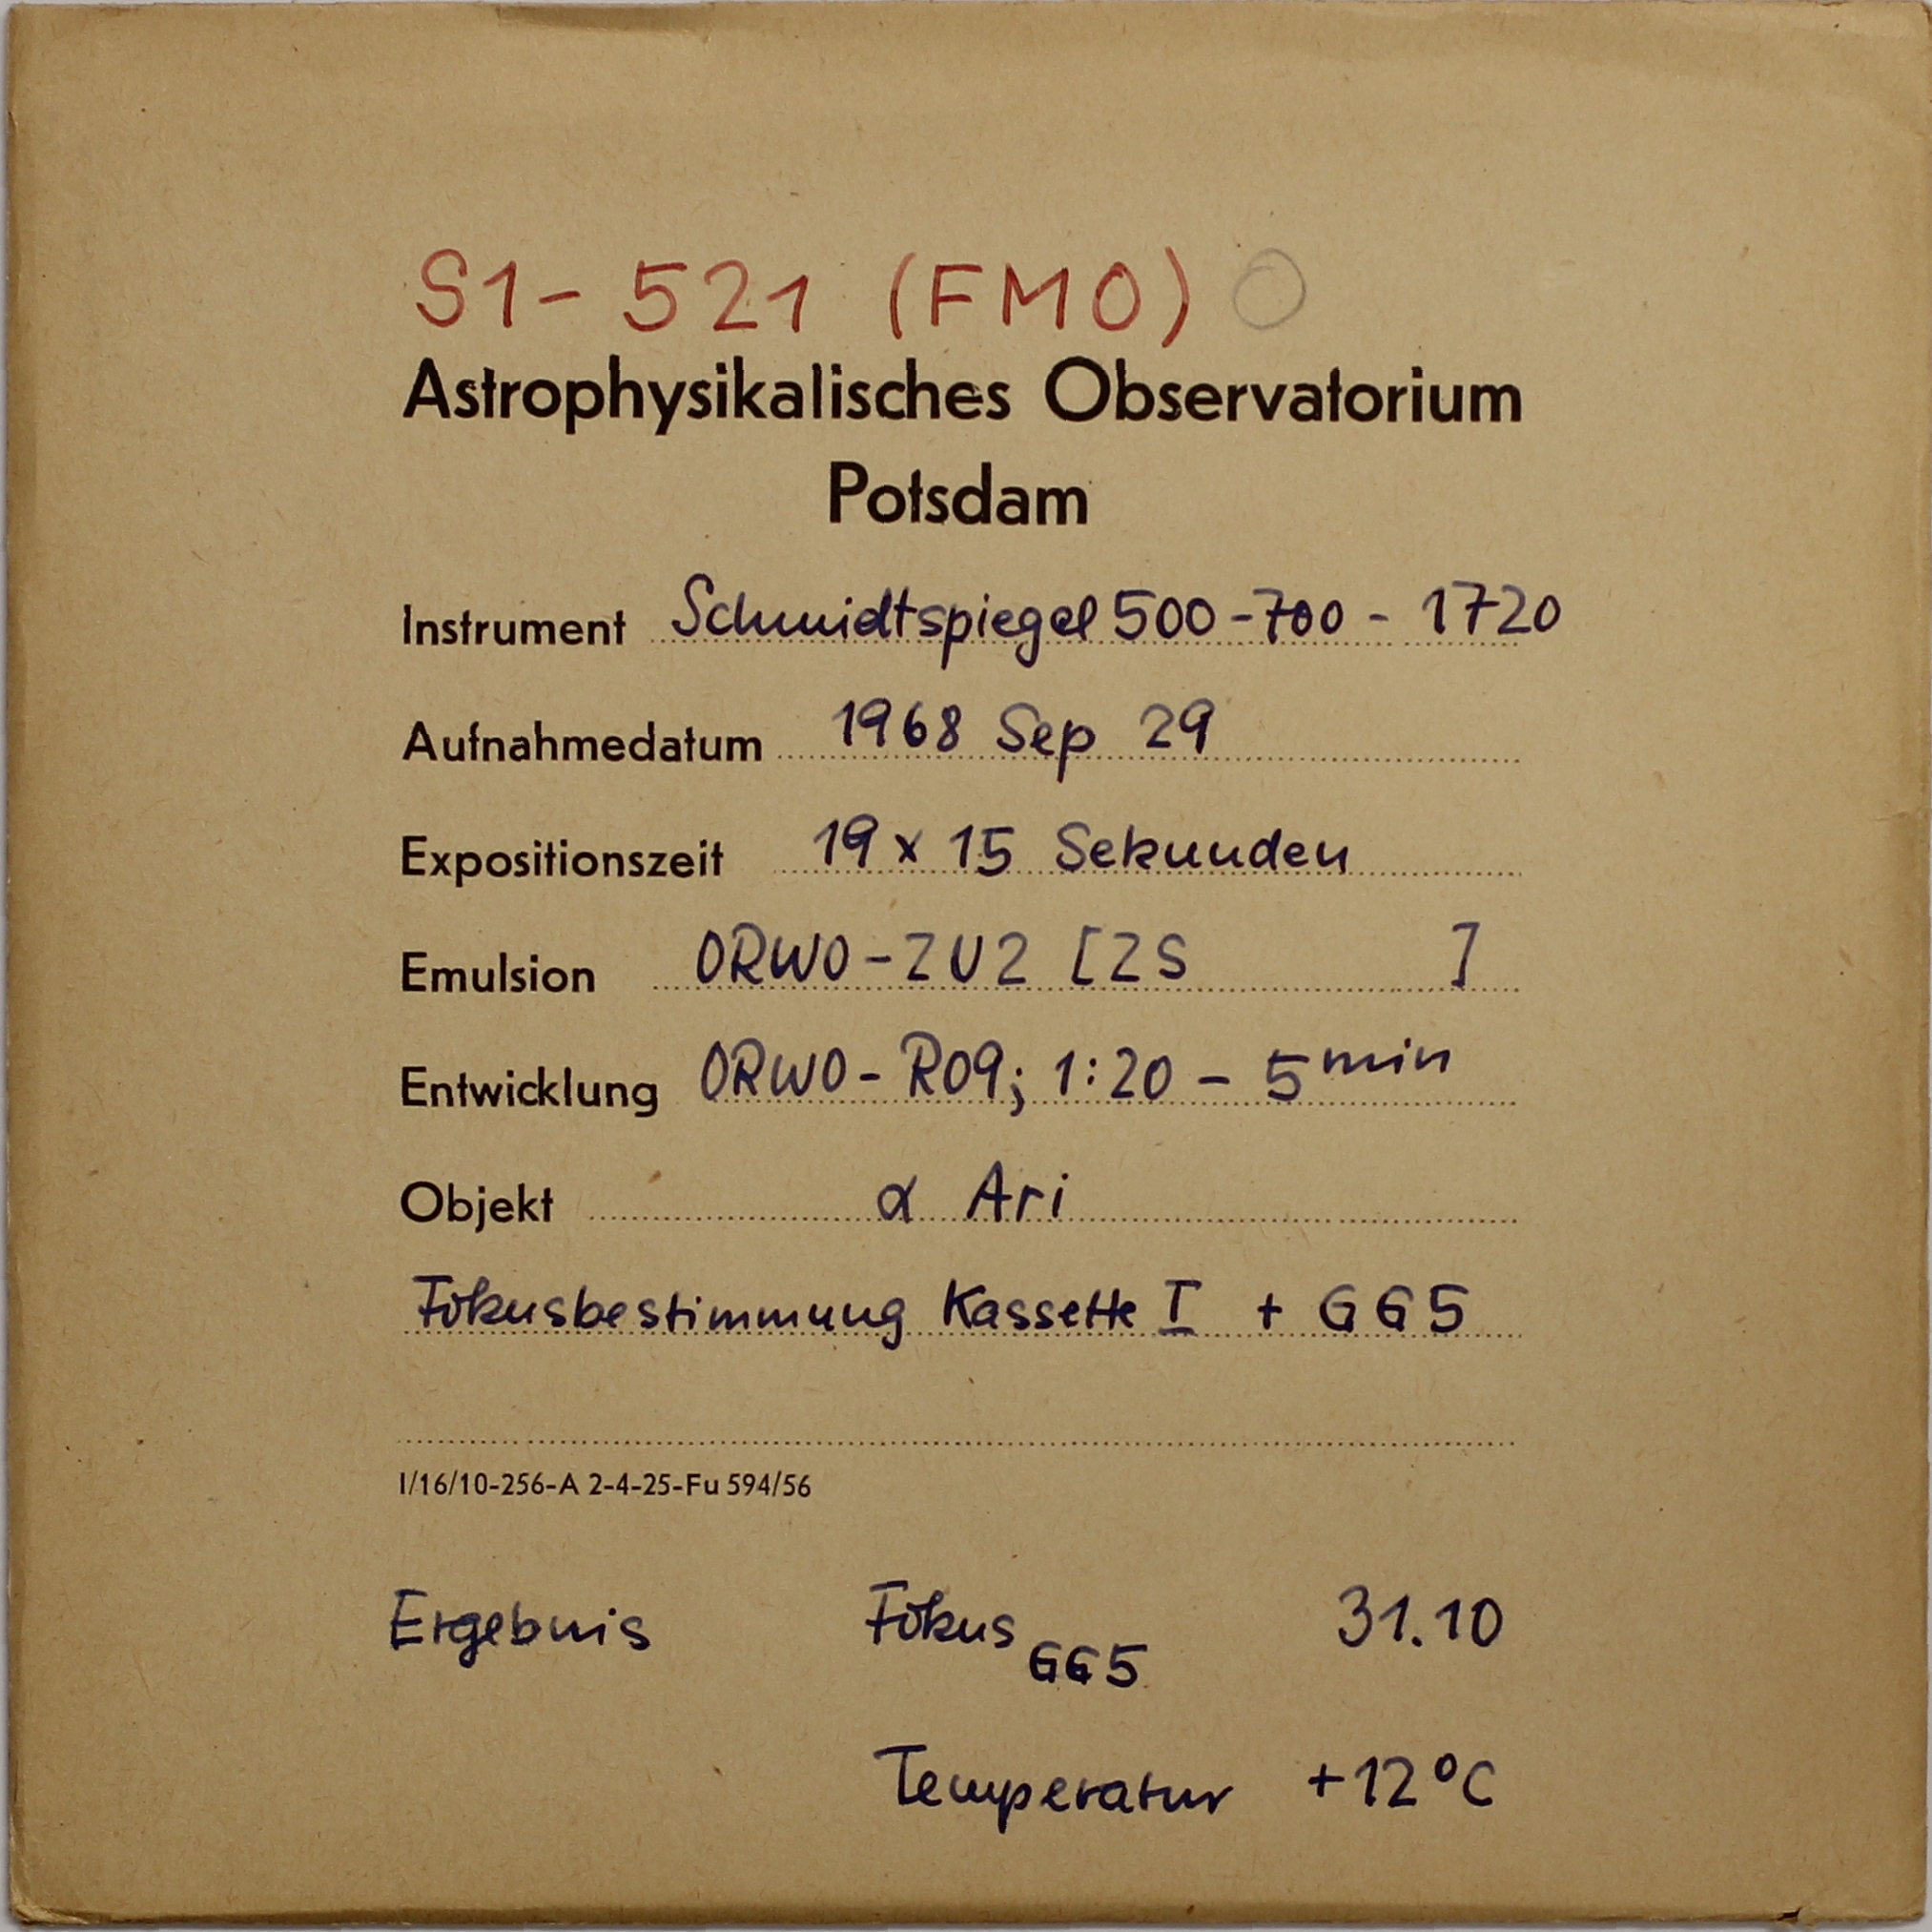 S1-521 (FMO) O
Astrophysikalisches Observatorium
Potsdam
Instrument Schmidtspiegel 500-700-1720
Aufnahmedatum 1968 Sep 29
Expositionszeit 19 x 15 Sekunden
Emulsion ORWO-ZU2 [ZS ]
Entwicklung ORWO-R09; 1:20 - 5 min
Objekt α Ari
Fokusbestimmung Kassette I + GG5
I/16/10-256-A 2-4-25-Fu 594/56
Ergebnis Fokus GG5 31.10
Temperatur +12°C